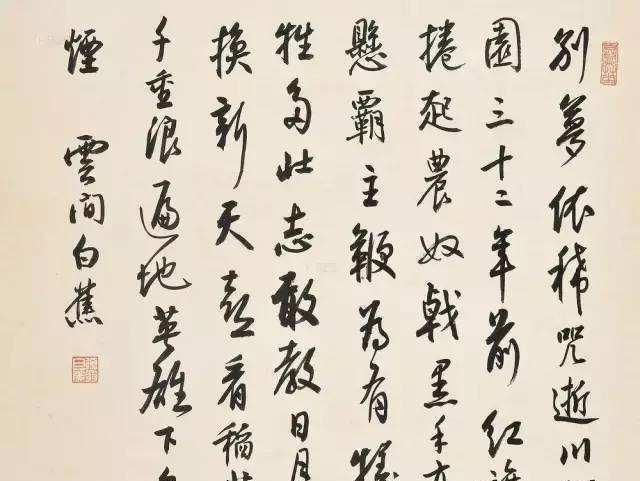 别夢依稀咒逝川
園三十二年前红旗
捲起農奴戟黑手高
懸霸主鞭为有犧
牲多壮志敢教日月
换新天喜看稻
千重浪遍地英雄下
煙 雲间白蕉